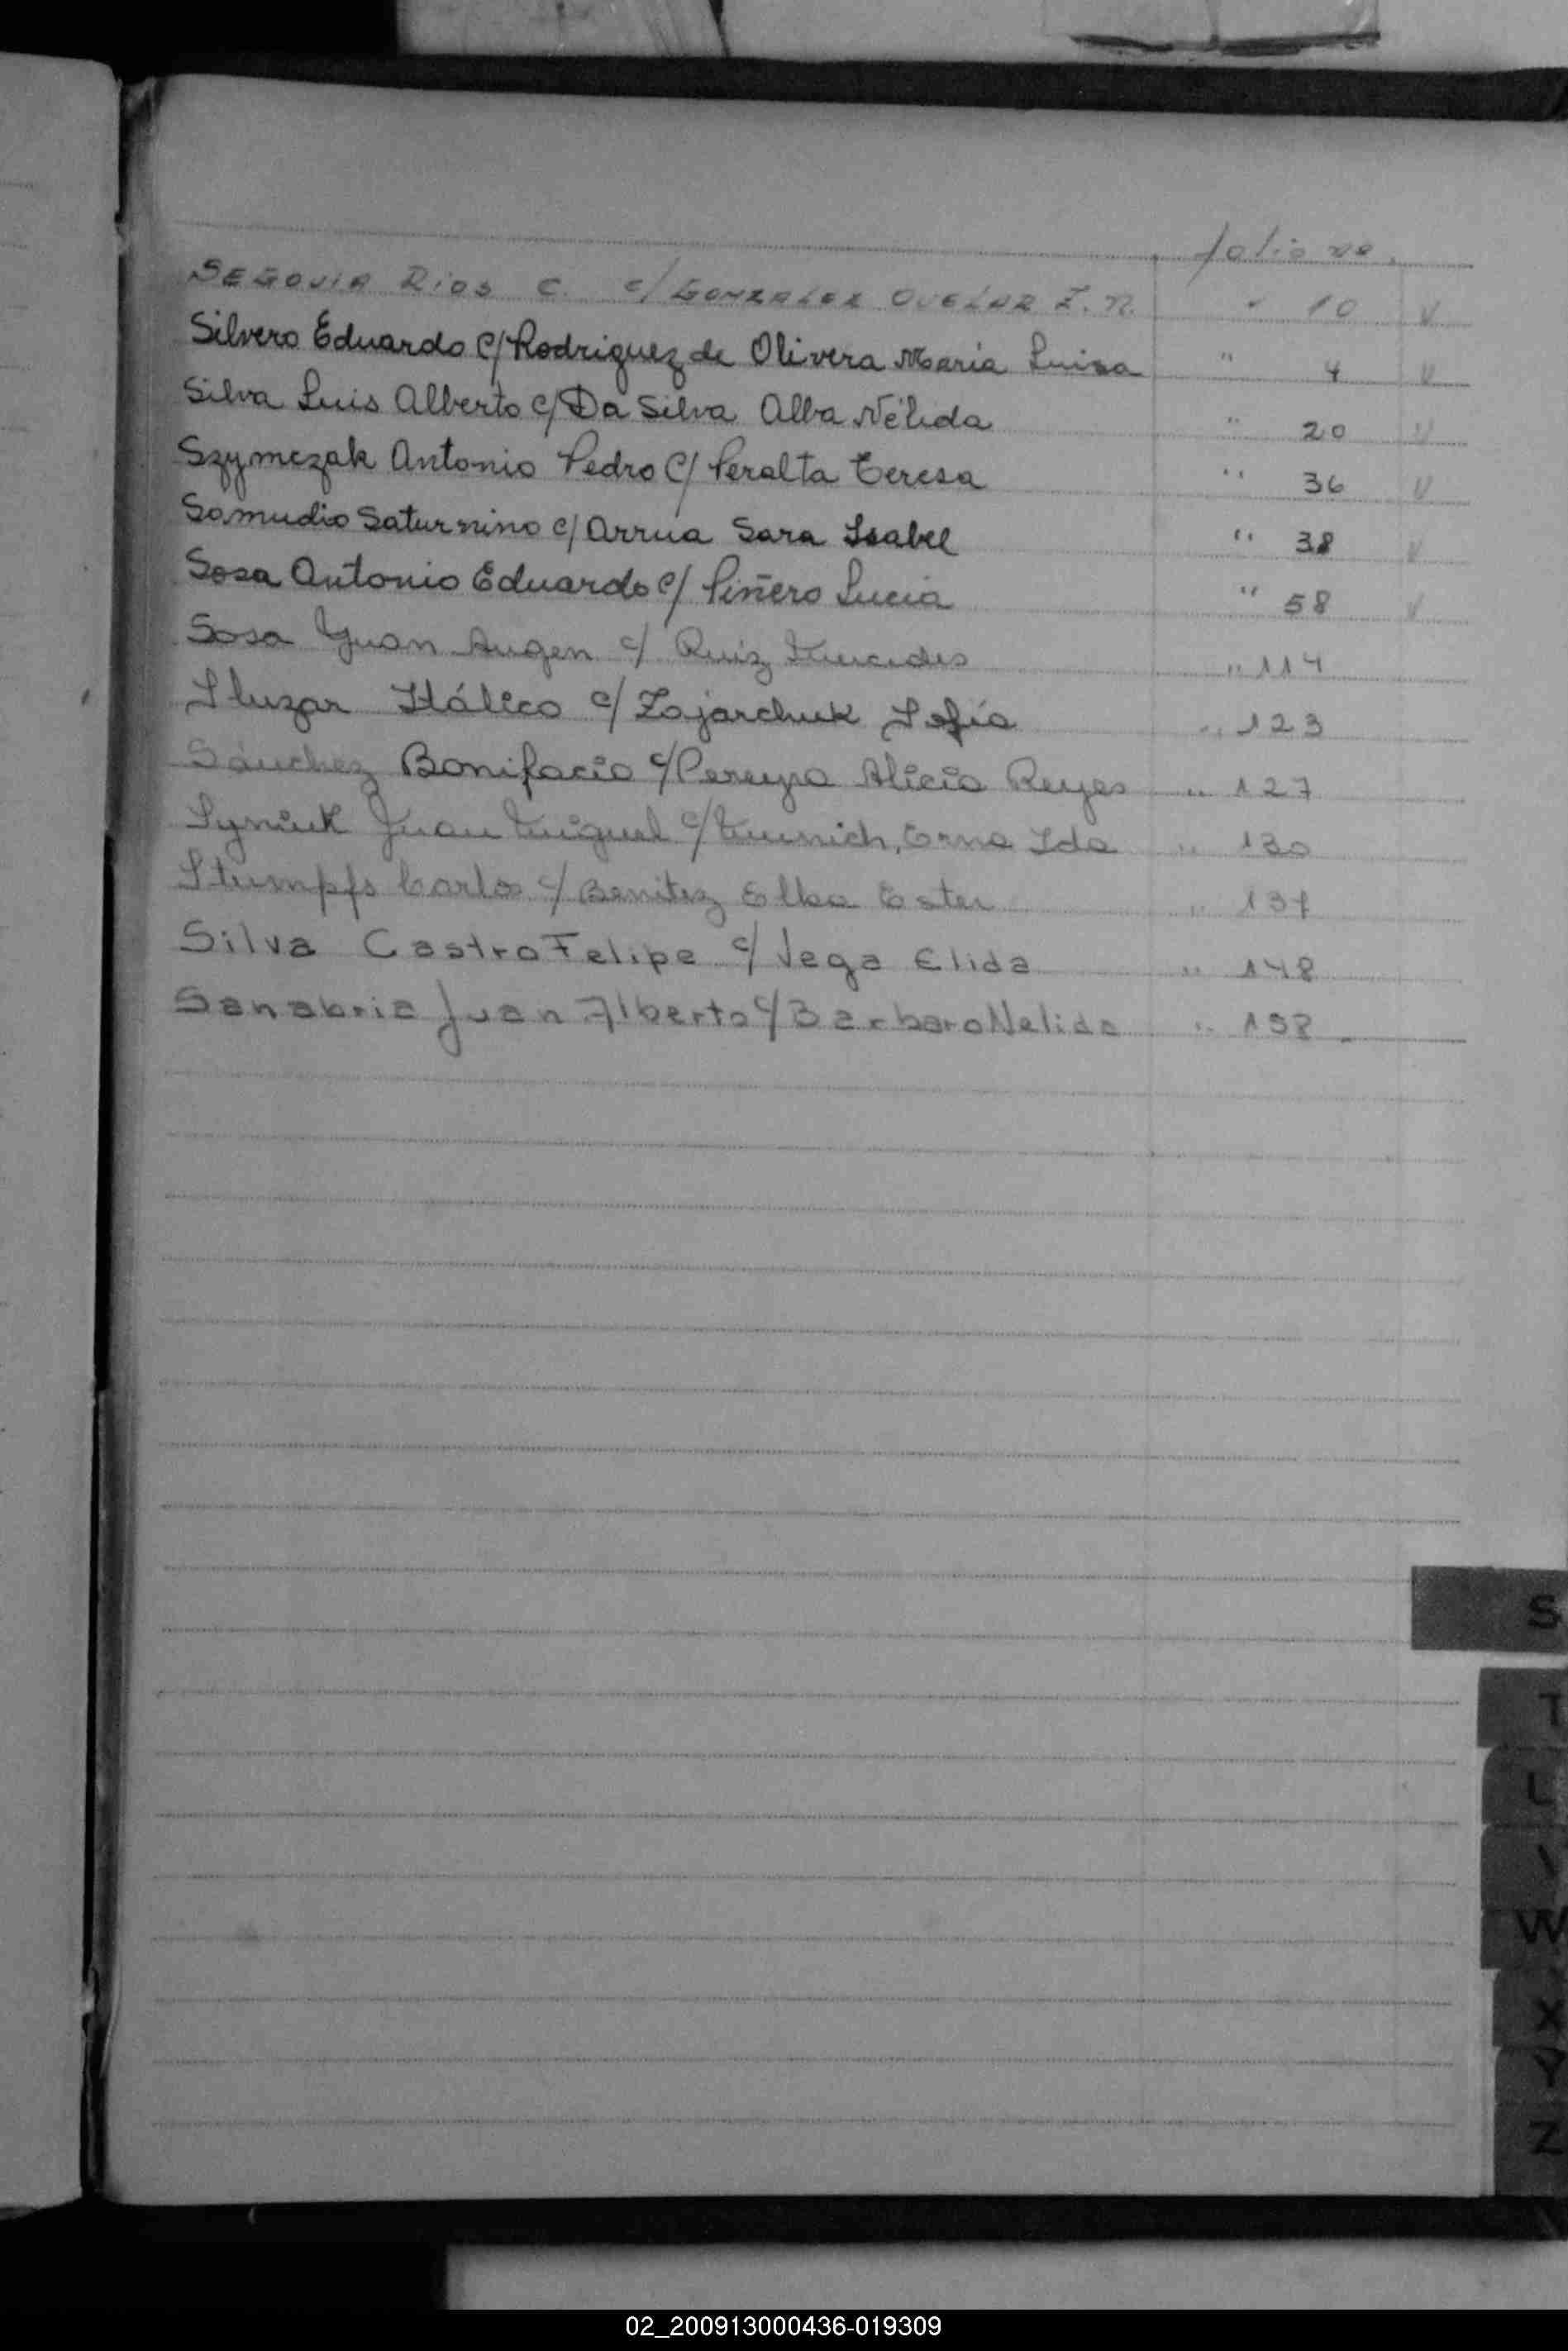 folio nº.
SEGOVIA RIOS C. c/ GONZALEZ OVELAR I. N. " 10 V
Silvero Eduardo c/ Rodriguez de Olivera María Luisa " 4 V
Silva Luis Alberto c/ Da Silva Alba Nélida " 20 V
Szymczak Antonio Pedro c/ Peralta Teresa " 36 V
Samudio Saturnino c/ Arrua Sara Isabel " 38 V
Sosa Antonio Eduardo c/ Piñero Lucia " 58 V
Sosa Juan Angen c/ Ruiz Mercedes " 114
Sluzar Itálico c/ Zajarchuk Sofía " 123
Sánchez Bonifacio c/ Pereyra Alicia Reyes " 127
Syniuk Juan Miguel c/ Erna Ida " 130
Stumpfs Carlos c/ Benitez Elba Ester "
Silva Castro Felipe c/ Vega Elida " 148
Sanabria Juan Alberto c/ Barbaro Nelida " 158
S
T
W
X
Y
Z
02_200913000436-019309